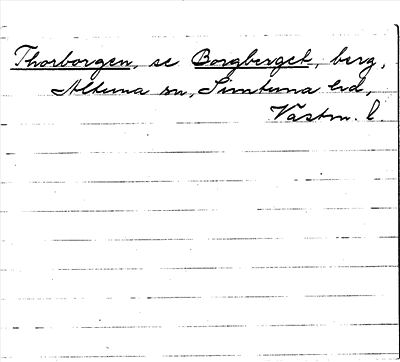 Thorborgen, se Borgberget, berg,
Altuna sn, Simtuna hd,
Västm. l.